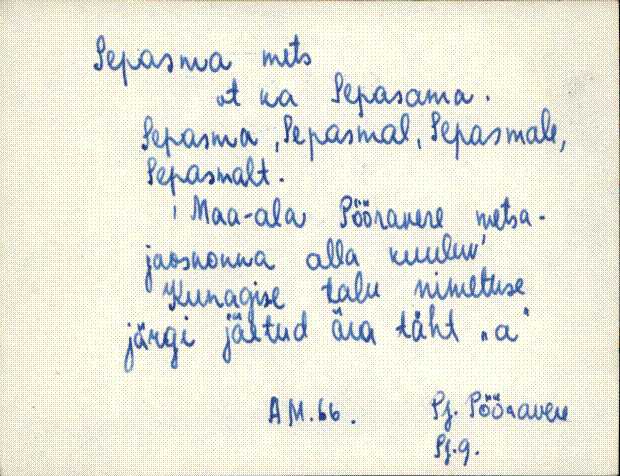 Sepasma mets
vt ka Sepasama.
Sepasma, Sepasmal, Sepasmale,
Sepasmalt.
' Maa-ala Pööravere metsa-
jaoskonna alla kuuluv'
Kunagise talu nimetuse
järgi jäetud ära täht „a"
AM.66. Pj. Pööravere
Pj.9.